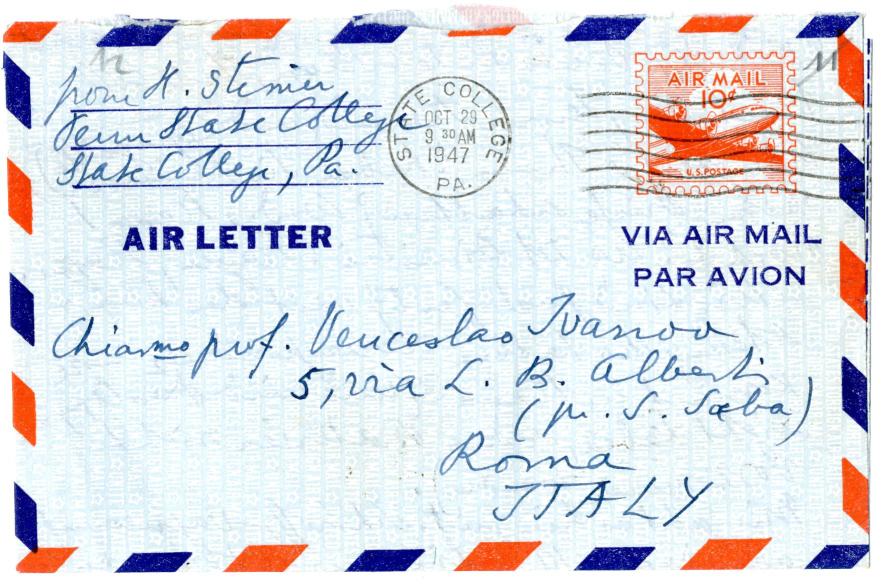 from H. Stemier
Penn State College
State College, Pa.
STATE COLLEGE
OCT 29
9 30 AM
1947
PA.
AIR MAIL
10¢
U.S. POSTAGE
AIR LETTER
VIA AIR MAIL
PAR AVION
Chiarmo prof. Venceslao Ivanov
5, via L. B. Alberti
(pr. S. Saba)
Roma
ITALY